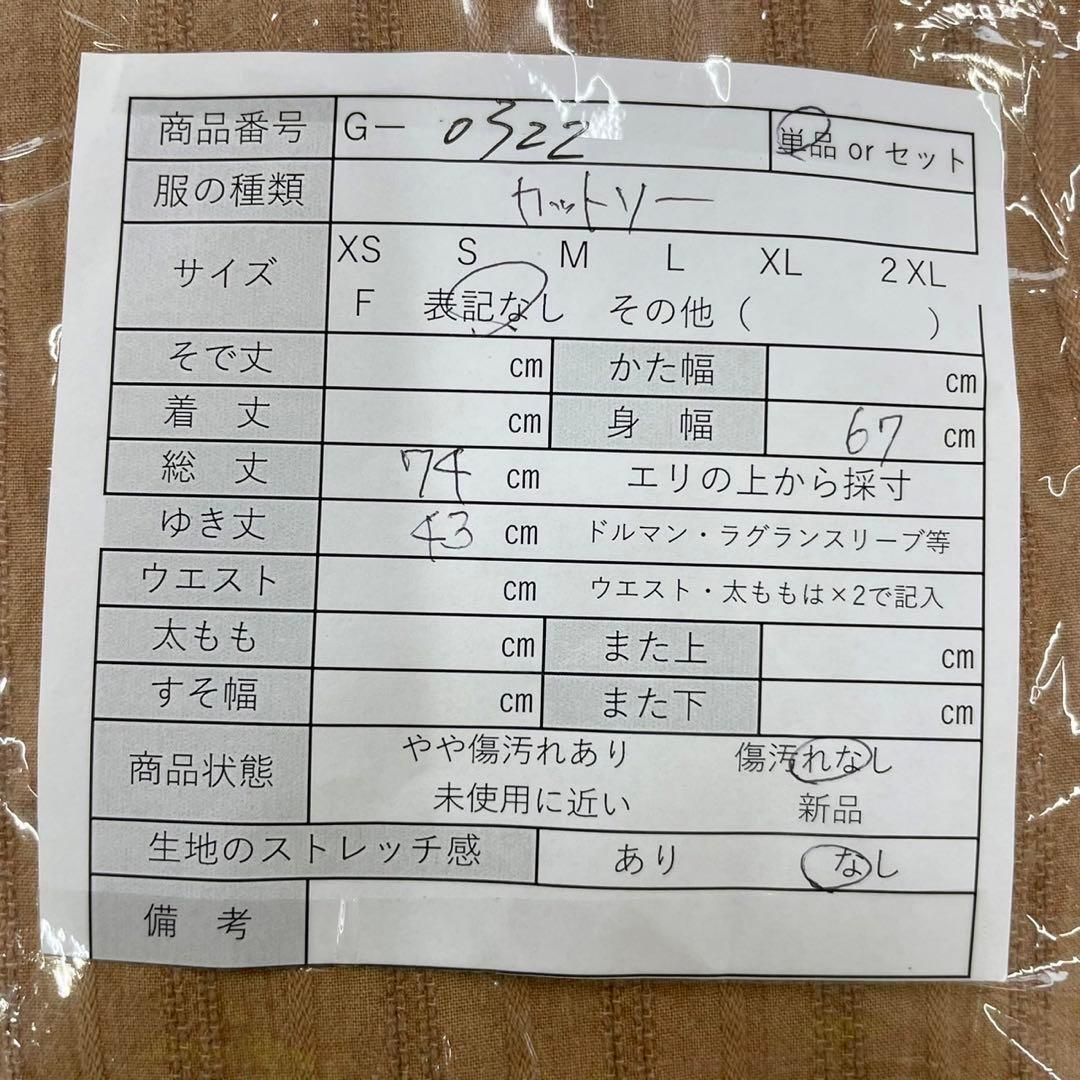 商品番号 G－ 0322 単品 or セット
服の種類 カットソー
サイズ XS S M L XL 2XL
F 表記なし その他（ ）
そで丈 cm かた幅 cm
着 丈 cm 身 幅 67 cm
総 丈 74 cm エリの上から採寸
ゆき丈 43 cm ドルマン・ラグランスリーブ等
ウエスト cm ウエスト・太ももは×2で記入
太もも cm また上 cm
すそ幅 cm また下 cm
商品状態 やや傷汚れあり 傷汚れなし
未使用に近い 新品
生地のストレッチ感 あり なし
備 考